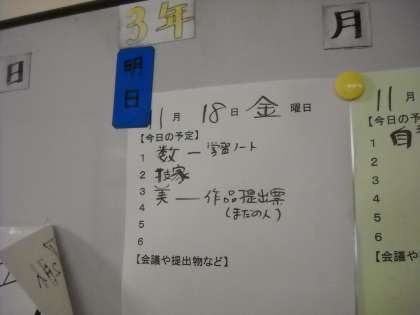 3年
日
月
明日
11月 18日 金曜日
【今日の予定】
1 数 — 学習ノート
2 技家
3 美 — 作品提出票
4 (まだの人)
5
6
【会議や提出物など】
11月
【今日の予
1 自
2
3
4
5
6
【会議や